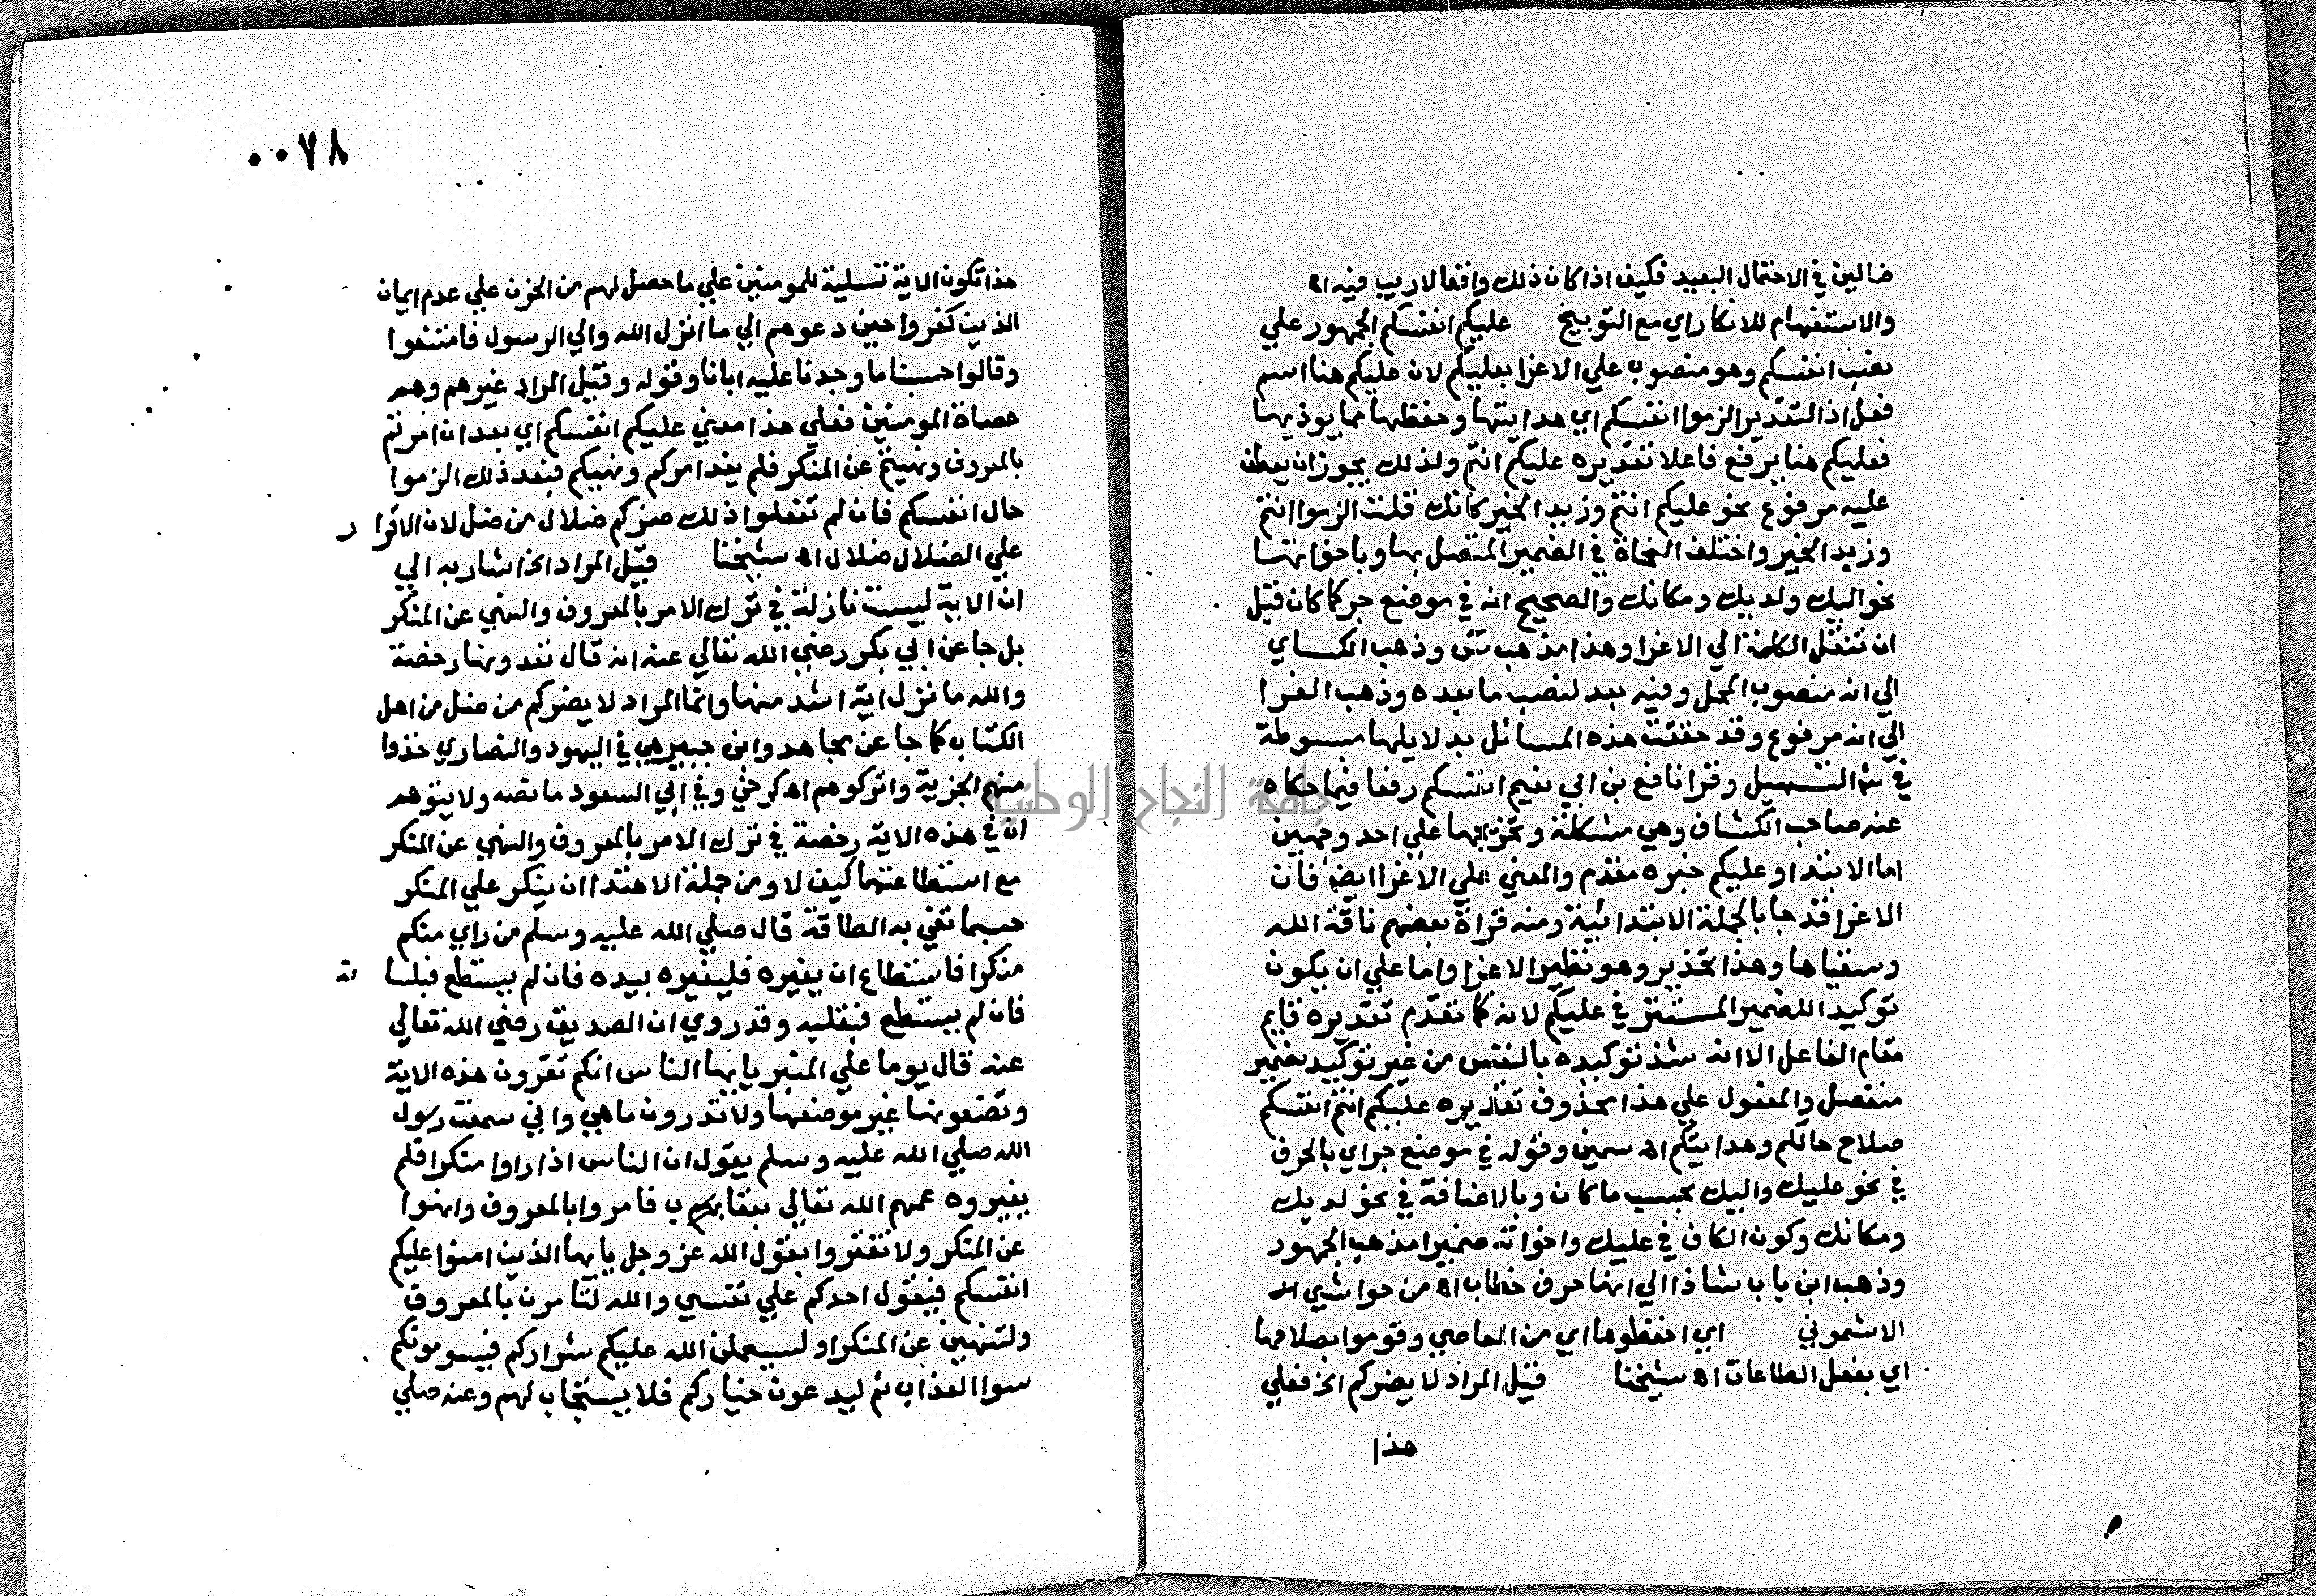 ضالين في الاحتمال البعيد فكيف اذا كان ذلك واقعا لا ريب فيه اه
والاستفهام للانكار اي مع التوبيخ عليكم انفسكم الجمهور علي
نصب انفسكم وهو منصوب علي الاغرا بعليكم لان عليكم هنا اسم
فعل اذ التقدير الزموا انفسكم اي هدايتها وحفظها مما يوذيها
فعليكم هنا يرفع فاعلا تقديره عليكم انتم ولذلك يجوز ان يعطف
عليه مرفوع نحو عليكم انتم وزيد الخير كانك قلت الزموا انتم
وزيد الخير واختلف النحاة في الضمير المتصل بها وباخواتها
نحو اليك ولديك ومكانك والصحيح انه في موضع جر كما كان قبل
ان تنقل الكلمة الي الاغرا وهذا مذهب س وذهب الكساي
الي انه منصوب المحل وفيه بعد لنصب ما بعده وذهب الفرا
الي انه مرفوع وقد حققت هذه المسائل بدلايلها مبسوطة
في شر التسهيل وقرا نافع بن ابي نعيم انفسكم رفعا فيما حكاه
عنه صاحب الكشاف وهي مشكلة وتخريجها علي احد وجهين
اما الابتدا وعليكم خبره مقدم والمعني علي الاغرا ايضا فان
الاغرا قد جا بالجملة الابتدائية ومنه قراة بعضهم ناقة الله
وسقياها وهذا تحذير وهو نظير الاغرا واما علي ان يكون
توكيدا للضمير المستتر في عليكم لانه كما تقدم تقديره قايم
مقام الفاعل الا انه شذ توكيده بالنفس من غير توكيد بضمير
منفصل والمفعول علي هذا محذوف تقديره عليكم انتم انفسكم
صلاح حالكم وهدايتكم اه سمين وقوله في موضع جر اي بالحرف
في نحو عليك واليك بحسب ما كان وبالاضافة في نحو لديك
ومكانك وكون الكاف في عليك واخواته ضميرا مذهب الجمهور
وذهب ابن باب شاذ الي انها حرف خطاب اه من حواشي الـ
الاشموني اي احفظوها اي من المعاصي وقوموا بصلاحها
اي بفعل الطاعات اه شيخنا قيل المراد لا يضركم الخ فعلي
هذا
٠٠٧٨
هذا تكون الاية تسلية للمومنين علي ما حصل لهم من الحزن علي عدم ايمان
الذين كفروا حين دعوهم الي ما انزل الله والي الرسول فامتنعوا
وقالوا حسبنا ما وجدنا عليه ابانا وقوله وقيل المراد غيرهم وهم
عصاة المومنين فعلي هذا معني عليكم انفسكم اي بعد ان امرتم
بالمعروف ونهيتم عن المنكر فلم يفد امركم ونهيكم فبعد ذلك الزموا
حال انفسكم فان لم تفعلوا ذلك ضركم ضلال من ضل لان الاقرار
علي الضلال ضلال اه شيخنا قيل المراد الخ اشار به الي
ان الاية ليست نازلة في ترك الامر بالمعروف والنهي عن المنكر
بل جا عن ابي بكر رضي الله تعالي عنه انه قال تعدونها رخصة
والله ما نزل اية اشد منها وانما المراد لا يضركم من ضل من اهل
الكتاب كما جا عن مجاهد وابن جبير هي في اليهود والنصاري خذوا
منهم الجزية واتركوهم اه كرخي وفي ابي السعود ما نصه ولا يتوهم
ان في هذه الاية رخصة في ترك الامر بالمعروف والنهي عن المنكر
مع استطاعتهما كيف لا ومن جملة الاهتدا ان ينكر علي المنكر
حسبما تفي به الطاقة قال صلي الله عليه وسلم من راي منكم
منكرا فاستطاع ان يغيره فليغيره بيده فان لم يستطع فبلسانه
فان لم يستطع فبقلبه وقد روي ان الصديق رضي الله تعالي
عنه قال يوما علي المنبر يا يها الناس انكم تقرون هذه الاية
وتضعونها غير موضعها ولا تدرون ما هي واني سمعت رسول
الله صلي الله عليه وسلم يقول ان الناس اذا راوا منكرا فلم
يغيروه عمهم الله تعالي بعقاب فامروا بالمعروف وانهوا
عن المنكر ولا تغتروا بقول الله عز وجل يا يها الذين امنوا عليكم
انفسكم فيقول احدكم علي نفسي والله لتامرن بالمعروف
ولتنهين عن المنكر او ليستعملن الله عليكم شراركم فيسومونكم
سوا العذاب ثم ليدعون خياركم فلا يستجاب لهم وعنه صلي
جامعة النجاح الوطنية